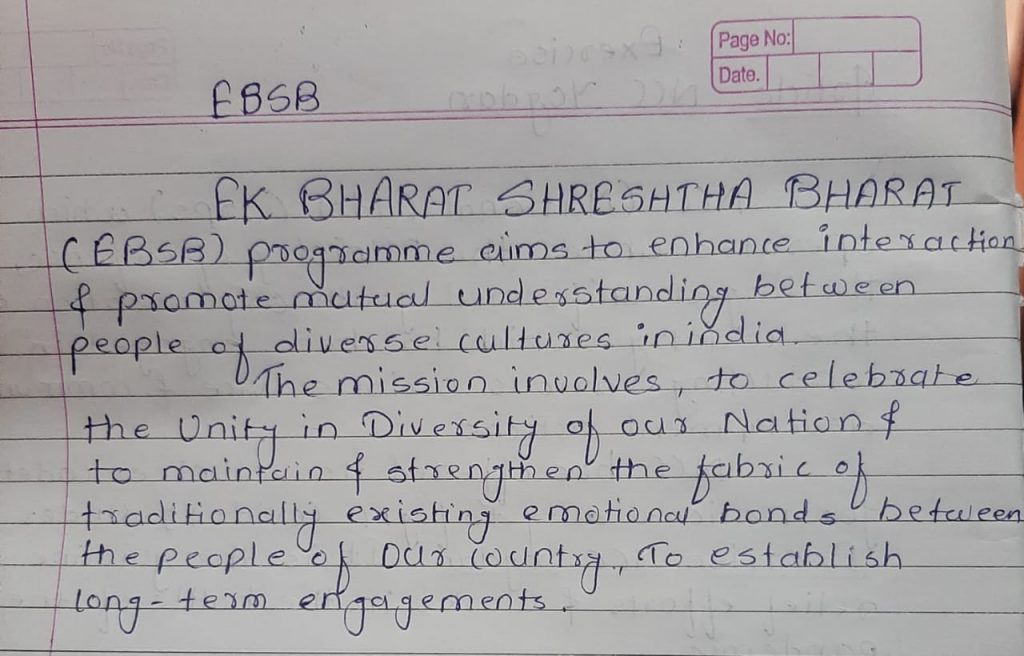 Page No:
Date.
EBSB
EK BHARAT SHRESHTHA BHARAT
(EBSB) programme aims to enhance interaction
& promote mutual understanding between
people of diverse cultures in india.
The mission involves, to celebrate
the Unity in Diversity of our Nation &
to maintain & strengthen the fabric of
traditionally existing emotional bonds between
the people of our country, To establish
long-term engagements.